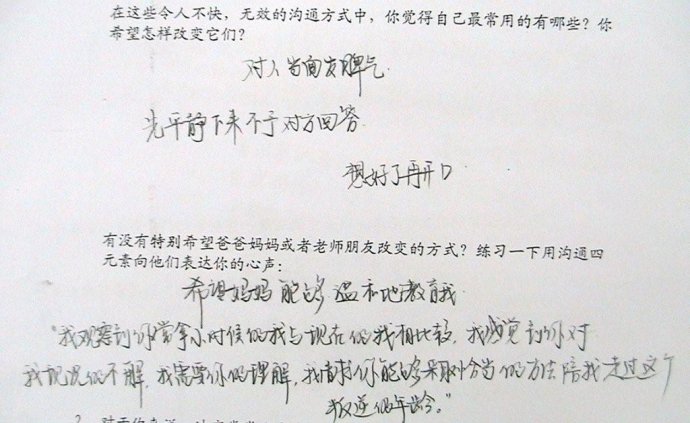 在这些令人不快，无效的沟通方式中，你觉得自己最常用的有哪些？你
希望怎样改变它们？
对人当面发脾气
先平静下来不予对方回答
想好了再开口
有没有特别希望爸爸妈妈或者老师朋友改变的方式？练习一下用沟通四
元素向他们表达你的心声：
希望妈妈能够温和地教育我
“我观察到你常拿小时候的我与现在的我相比较，我感觉到你对
我现况的不解，我需要你的理解，我请求你能够采取外当的方法陪我走过这个
叛逆的年龄。”